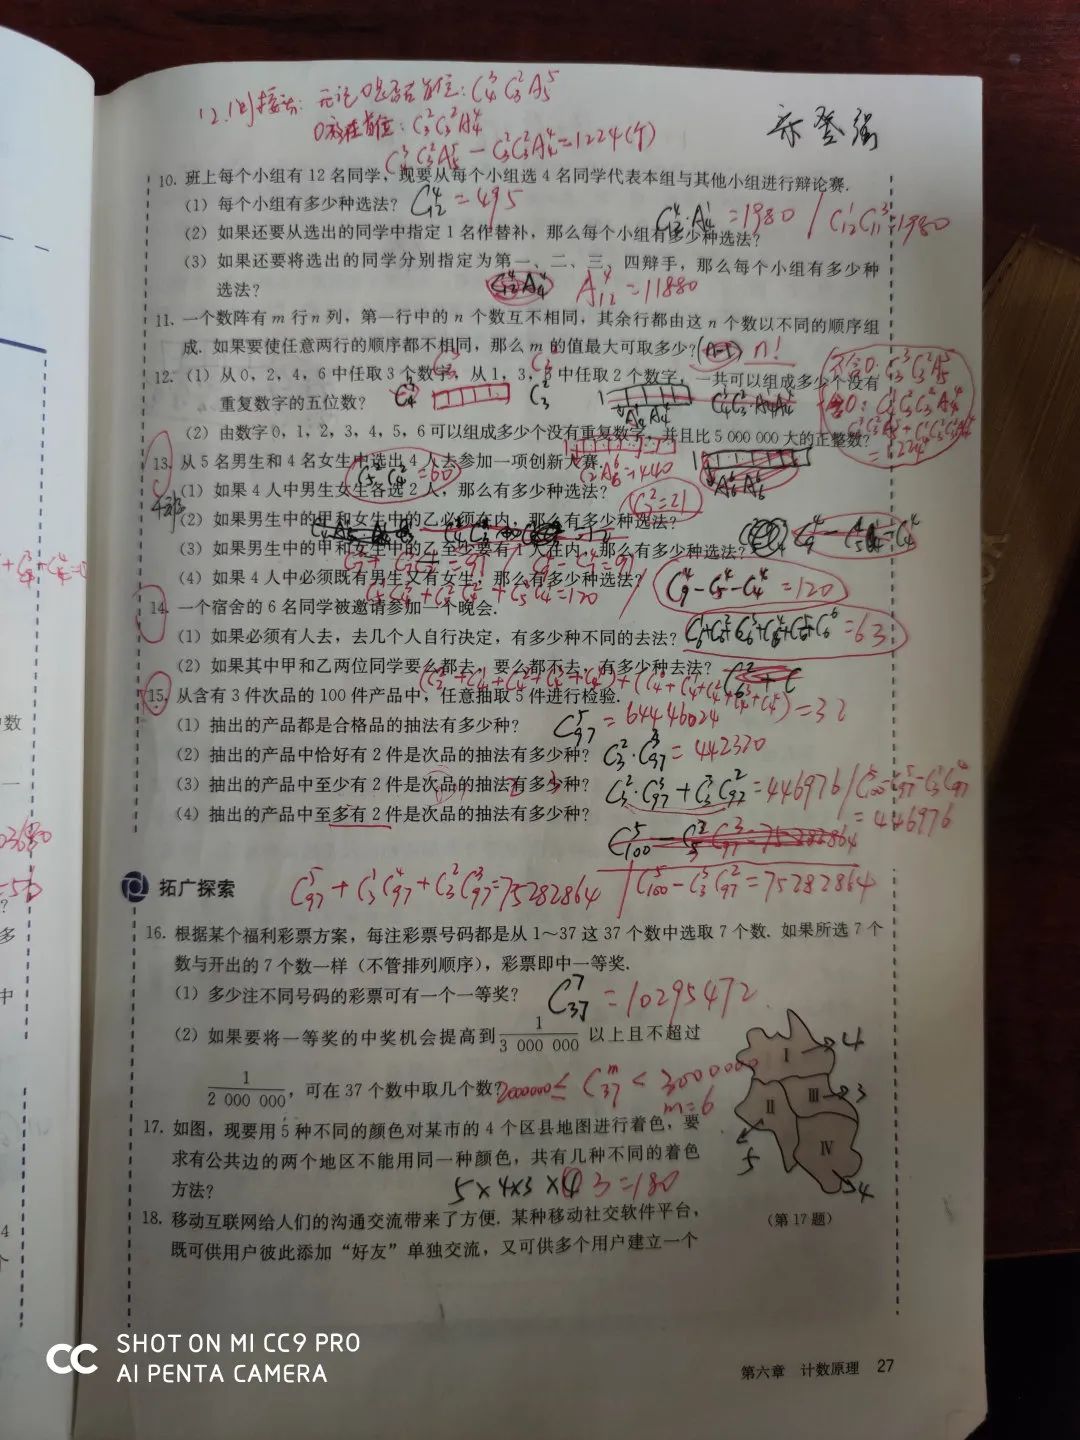 12.(1)间接法: 无论0是否在首位: C₄³C₃²A₅⁵
0放在首位: C₃²C₃²A₄⁴
C₄³C₃²A₅⁵ - C₃²C₃²A₄⁴ = 1224(个)
10. 班上每个小组有 12 名同学，现要从每个小组选 4 名同学代表本组与其他小组进行辩论赛.
（1）每个小组有多少种选法？ C₁₂⁴ = 495
（2）如果还要从选出的同学中指定 1 名作替补，那么每个小组有多少种选法？ C₁₂⁴·A₄¹ = 1980 / C₁₂¹C₁₁³ = 1980
（3）如果还要将选出的同学分别指定为第一、二、三、四辩手，那么每个小组有多少种
选法？ C₁₂⁴A₄⁴ A₁₂⁴ = 11880
11. 一个数阵有 m 行 n 列，第一行中的 n 个数互不相同，其余行都由这 n 个数以不同的顺序组
成. 如果要使任意两行的顺序都不相同，那么 m 的值最大可取多少？ n!
12.（1）从 0，2，4，6 中任取 3 个数字，从 1，3，5 中任取 2 个数字，一共可以组成多少个没有
重复数字的五位数？ C₄³ C₃²
不含0: C₃³C₃²A₅⁵
（2）由数字 0，1，2，3，4，5，6 可以组成多少个没有重复数字，并且比 5 000 000 大的正整数？
= 1224
13. 从 5 名男生和 4 名女生中选出 4 人去参加一项创新大赛.
A₆⁶ = 1440
（1）如果 4 人中男生女生各选 2 人，那么有多少种选法？ C₅²C₄² = 60
（2）如果男生中的甲和女生中的乙必须在内，那么有多少种选法？ C₇² = 21
（3）如果男生中的甲和女生中的乙至少要有 1 人在内，那么有多少种选法？
= 91 / C₉⁴ - C₇⁴ = 91
（4）如果 4 人中必须既有男生又有女生，那么有多少种选法？ C₉⁴ - C₅⁴ - C₄⁴ = 120
C₅¹C₄³ + C₅²C₄² + C₅³C₄¹ = 120
14. 一个宿舍的 6 名同学被邀请参加一个晚会.
（1）如果必须有人去，去几个人自行决定，有多少种不同的去法？ C₆¹+C₆²+C₆³+C₆⁴+C₆⁵+C₆⁶ = 63
（2）如果其中甲和乙两位同学要么都去，要么都不去，有多少种去法？
15. 从含有 3 件次品的 100 件产品中，任意抽取 5 件进行检验.
（1）抽出的产品都是合格品的抽法有多少种？ C₉₇⁵ = 64446024
（2）抽出的产品中恰好有 2 件是次品的抽法有多少种？ C₃²·C₉₇³ = 442320
（3）抽出的产品中至少有 2 件是次品的抽法有多少种？ C₃²·C₉₇³ + C₃³C₉₇² = 446976 / C₁₀₀⁵ - C₉₇⁵ - C₃¹C₉₇⁴
= 446976
（4）抽出的产品中至多有 2 件是次品的抽法有多少种？
拓广探索
C₉₇⁵ + C₃¹C₉₇⁴ + C₃²C₉₇³ = 75282864 / C₁₀₀⁵ - C₃³C₉₇² = 75282864
16. 根据某个福利彩票方案，每注彩票号码都是从 1～37 这 37 个数中选取 7 个数. 如果所选 7 个
数与开出的 7 个数一样（不管排列顺序），彩票即中一等奖.
（1）多少注不同号码的彩票可有一个一等奖？ C₃₇⁷ = 10295472
（2）如果要将一等奖的中奖机会提高到 1/3 000 000 以上且不超过
1/2 000 000，可在 37 个数中取几个数？ 2000000 ≤ C₃₇ᵐ < 3000000
m = 6
17. 如图，现要用 5 种不同的颜色对某市的 4 个区县地图进行着色，要
求有公共边的两个地区不能用同一种颜色，共有几种不同的着色
方法？ 5×4×3×3 = 180
Ⅰ 4
Ⅱ Ⅲ 3
5 Ⅳ
4
（第 17 题）
18. 移动互联网给人们的沟通交流带来了方便. 某种移动社交软件平台，
既可供用户彼此添加“好友”单独交流，又可供多个用户建立一个
第六章 计数原理 27
SHOT ON MI CC9 PRO
AI PENTA CAMERA